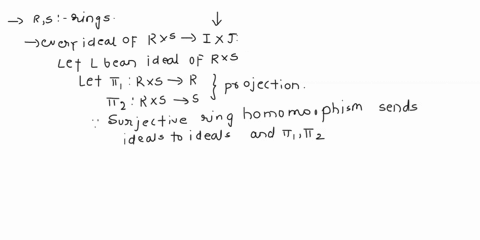 → R,S :- rings.
→ every ideal of R×S → I×J.
Let L be an ideal of R×S
Let π₁ : R×S → R } projection.
π₂ : R×S → S
∵ Surjective ring homomorphism sends
ideals to ideals and π₁, π₂